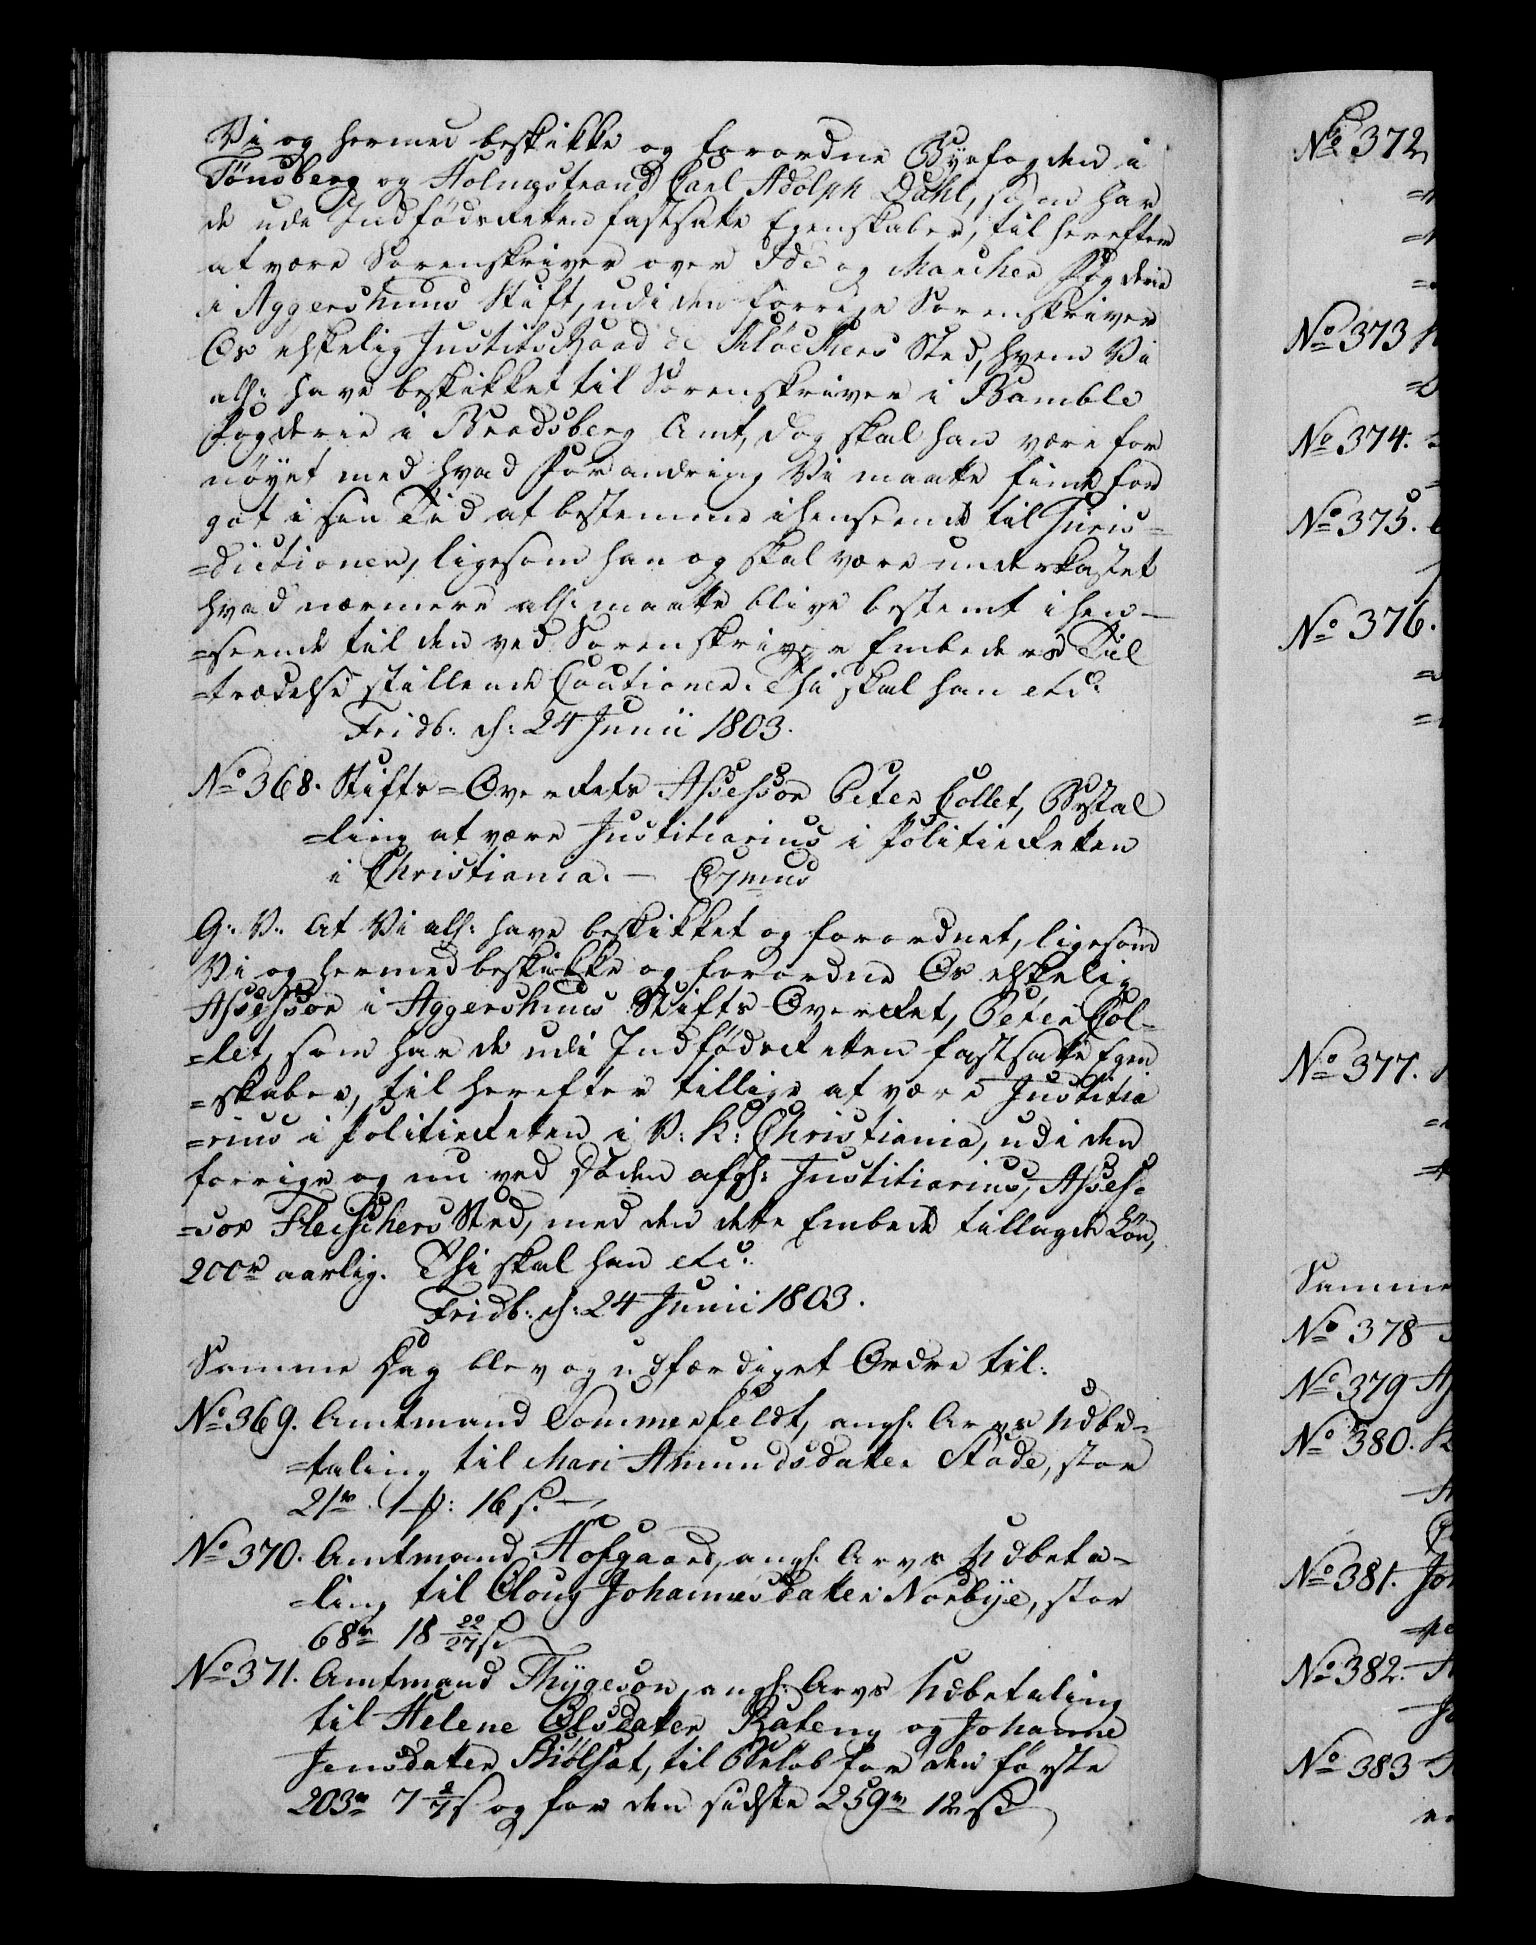 Vi og hermed beskikke og forordne Byefogden i
Tönsberg og Holmestrand Carl Adolph Dahl, som har
de udi Indfödsretten fastsatte Egenskaber, til herefter
at være Sorenskriver over Ide og Marcher Fogderie
i Aggershuus Stift, udi den forrige Sorenskriver
Os elskelig Justitsraad de Klöckers Sted, hvem Vi
allr: have beskikket til Sorenskriver i Bamble
Fogderie i Bradsberg Amt, dog skal han være for
nöyet med hvad Forandring Vi maatte finde for
got i sin Tid at bestemme i henseende til Juris-
=dictionen, ligesom han og skal være underkastet
hvad nærmere allr: maatte blive bestemt i hen-
=seende til den ved Sorenskriver Embeders Til
=trædelse stillende Cautioner. Thi skal han etc:
Fridb: d: 24 Junii 1803.
No 368. Stifts=Overrets Assessor Peter Collet, Bestal
=ling at være Justitiarius i Politieretten
i Christiania. —
G: V: At Vi allr: have beskikket og forordnet, ligesom
Vi og hermed beskikke og forordne Os elskelig
Assessor i Aggershuus Stifts Overret, Peter Col-
=let, som har de udi Indfödsretten fastsatte Egen
=skaber, til herefter tillige at være Justitia
=rius i Politieretten i V: K: Christiania, udi den
forrige og nu ved Döden afg: Justitiarius, Asses-
=sor Fleischers Sted, med den dette Embede tillagde Lön,
200 rd aarlig. Thi skal han etc:
Fridb: d: 24 Junii 1803.
Samme Dag blev og udfærdiget Ordre til:
No 369. Amtmand Sommerfeldt, angl: Arvs Udbe-
=taling til Mari Amundsdatter Stade, stor
21 rd 1 p: 16 s. —
No 370. Amtmand Hofgaard, angl: Arvs Udbeta-
=ling til Oloug Johannesdatter Norbye, stor
68 rd 18 22/27 s
No 371. Amtmand Thygeson, angl: Arvs Udbetaling
til Helene Olsdatter Rateng og Johanne
Jensdatter, til Belöb for den förste
203 rd 7 2/7 s og for den sidste 259 rd 12 s
No 372
No 373
No 374.
No 375.
No 376.
No 377.
Samme
No 378
No 379
No 380.
No 381.
No 382.
No 383